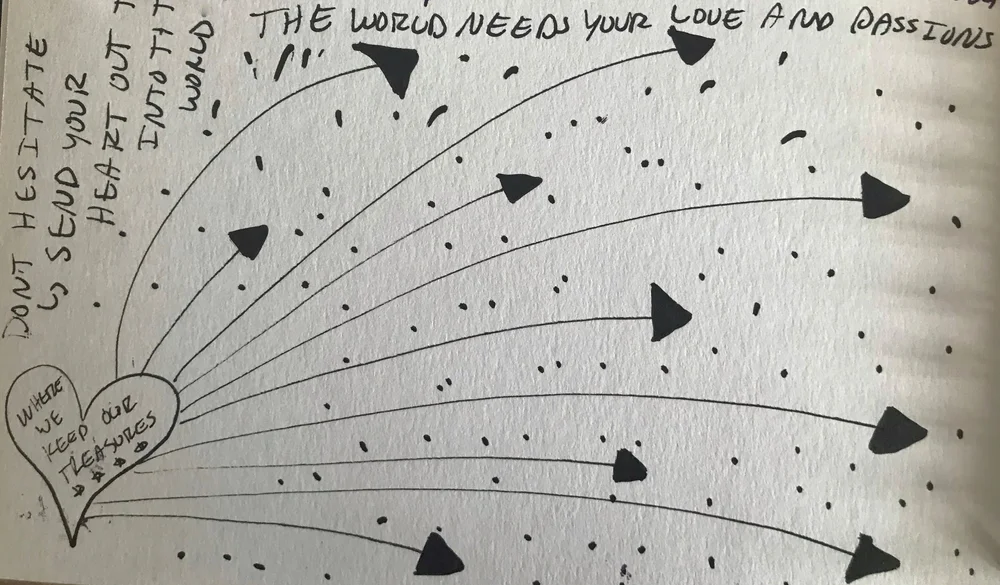 THE WORLD NEEDS YOUR LOVE AND PASSIONS
DONT HESITATE
↳ SEND YOUR
HEART OUT
WORLD
WHERE
WE
KEEP OUR
TREASURES